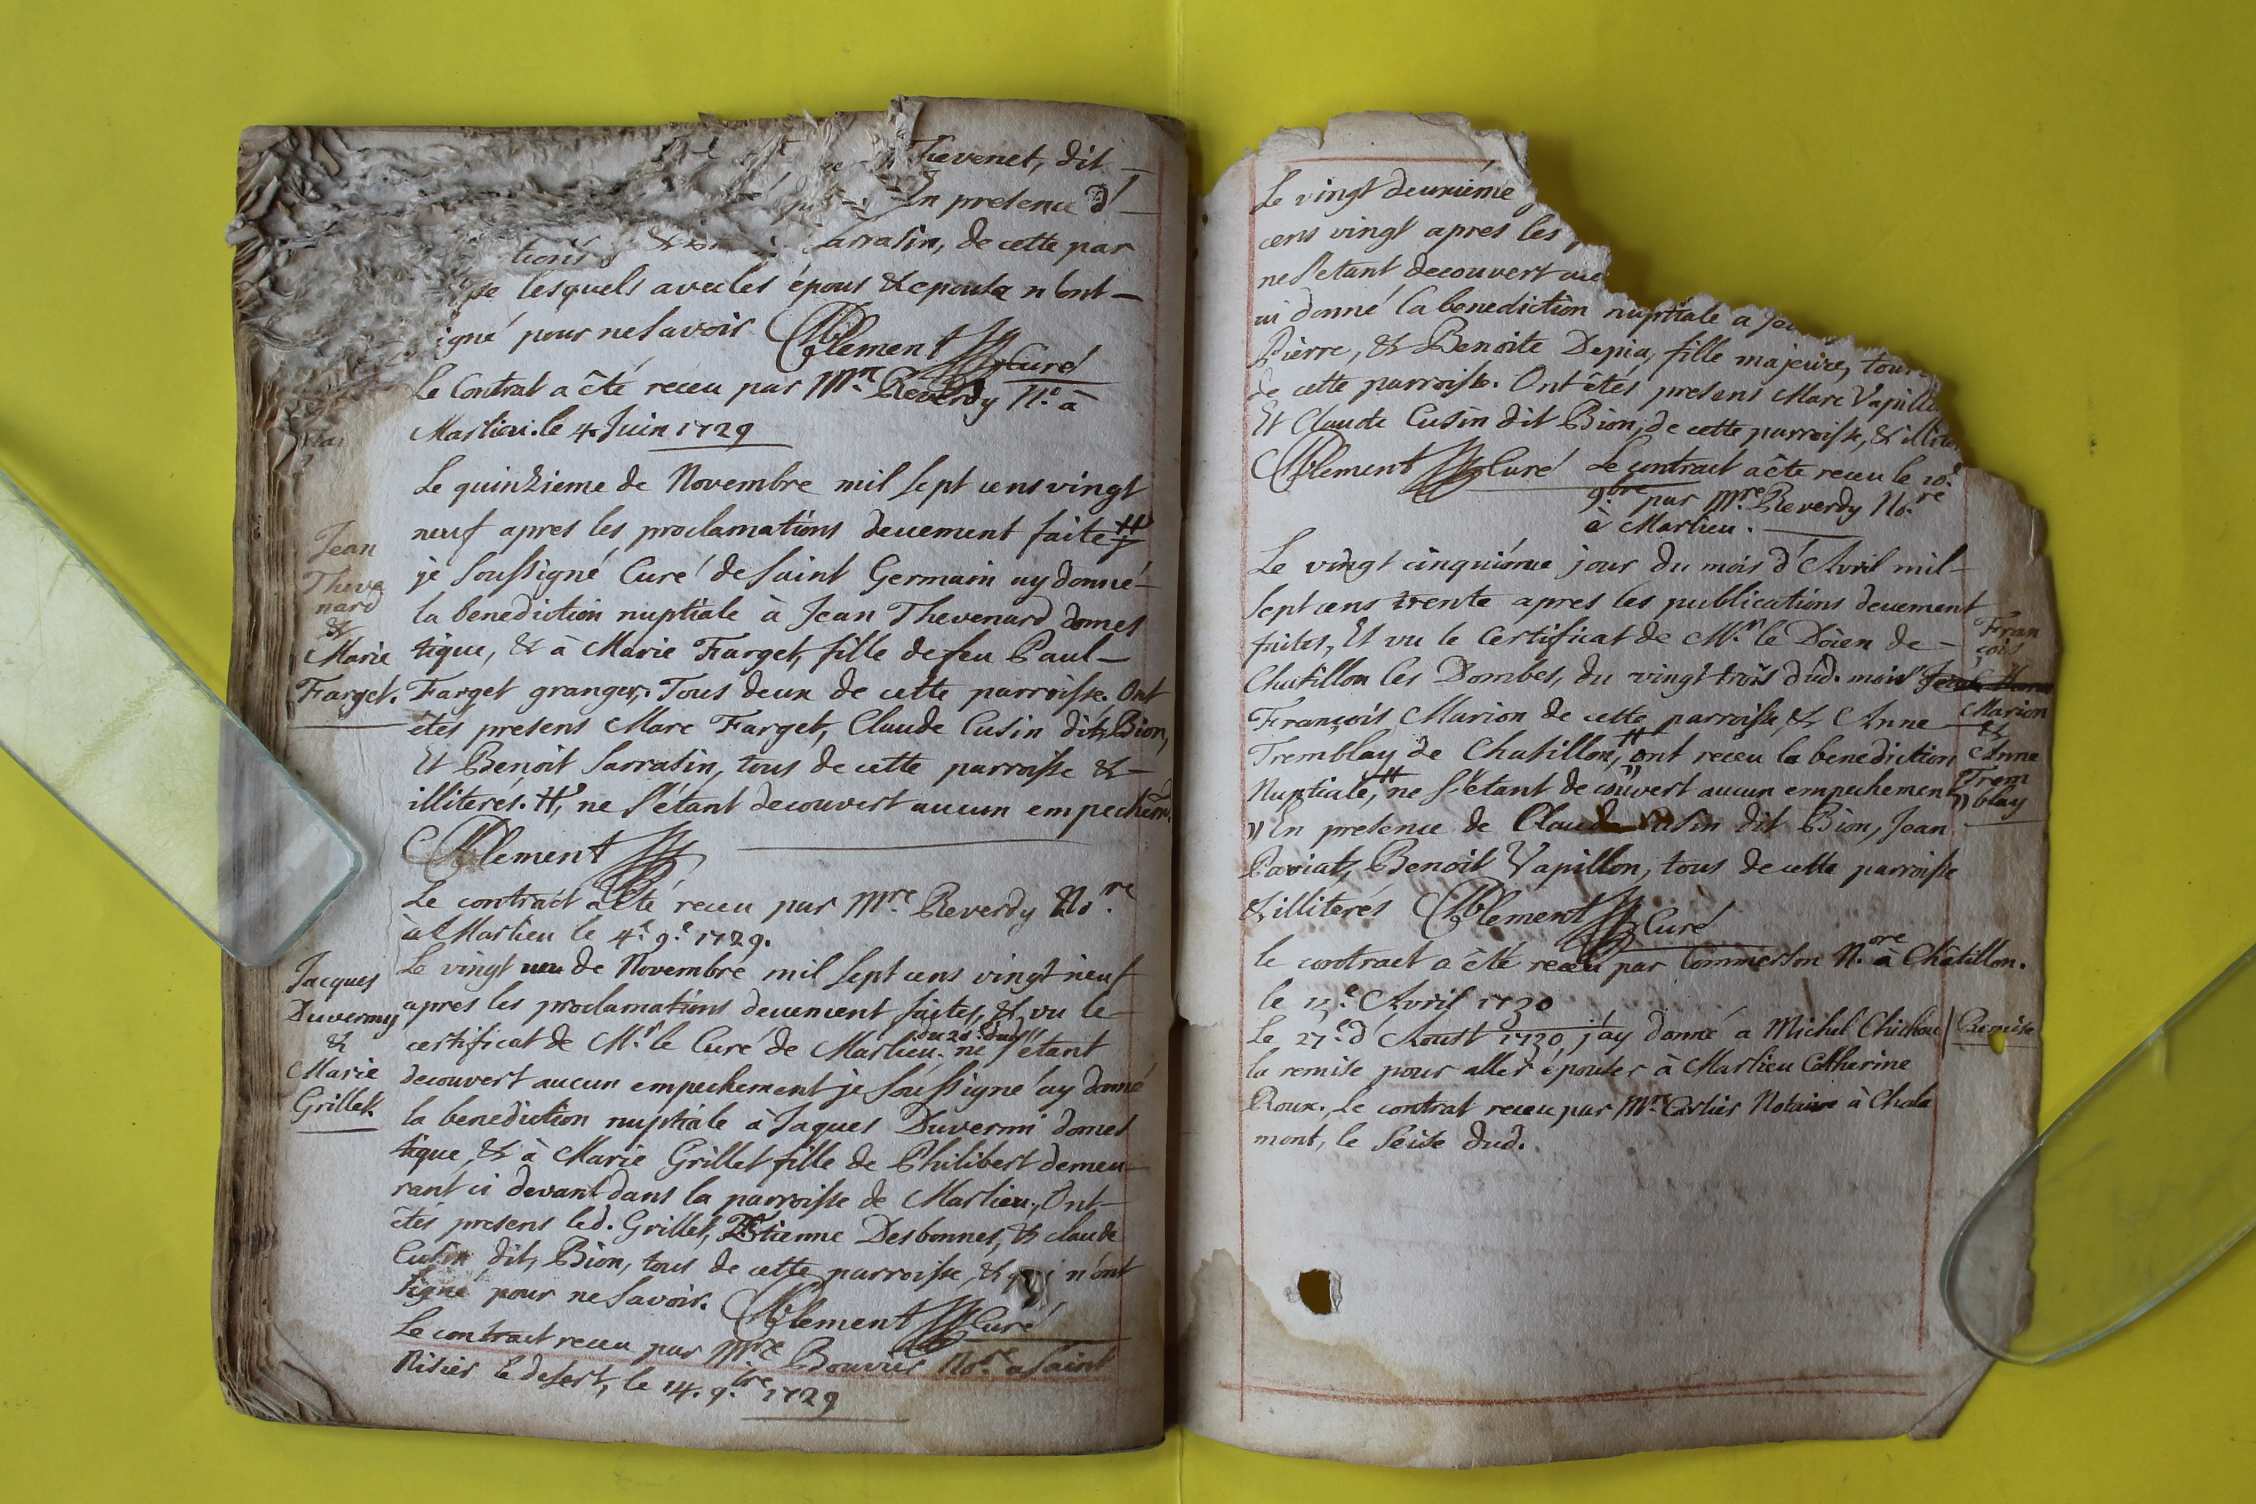 Thevenet, dit
En presence d'
Sarrasin, de cette par
lesquels avec les épous & epouse n'ont
igné pour ne savoir Clement Curé
Le Contrat a êté receu par Mre Reverdy No. à
Marlieu. le 4. Juin 1729
Le quinzieme de Novembre mil sept cens vingt
neuf apres les proclamations deuement faites
je soussigné Curé de Saint Germain ay donné
la benediction nuptiale à Jean Thevenard domes
tique, & à Marie Farget, fille de feu Paul
Farget granger, Tous deux de cette parroisse. Ont
êtés presens Marc Farget, Claude Cusin dit Bion,
Et Benoit Sarrasin, tous de cette parroisse &
illiterés. H, ne s'étant decouvert aucun empechem.
Clement
Le contract a êté receu par Mre Reverdy No.re
à Marlieu le 4.e 9.e 1729.
Jean
Theve
nard
&
Marie
Farget.
Le vingt neu de Novembre mil sept cens vingt neuf
apres les proclamations deuement faites, & vu le
certificat de Mr. le Curé de Marlieu du 20e dud. ne s'étant
decouvert aucun empechement je soussigné ay donné
la benediction nuptiale à Jaques Duverni domes
tique, & à Marie Grillet fille de Philibert demeu
rant ci devant dans la parroisse de Marlieu, Ont
êtés presens led. Grillet, Etienne Desbonnes, & claude
Cusin dit Bion, tous de cette parroisse, & qui n'ont
signé pour ne savoir. Clement Curé
Le contract receu par Mre Bouvier No.re a Saint
Nisier le desert, le 14. 9.bre 1729
Jacques
Duvermy
&
Marie
Grillet.
Le vingt deuxiéme
cens vingt apres les
ne s'etant decouvert auc
ai donné la benediction nuptiale a Jea
Pierre, & Benoite Depia, fille majeure, tous
de cette parroisse. Ont êtés presens Marc Vapillo
Et Claude Cusin dit Bion, de cette parroisse, & illite
Clement Curé Le contract a êté receu le 10.e
9.bre par Mre Reverdy No.re
à Marlieu.
Le vingt cinquiéme jour du mois d'Avril mil
sept cens trente apres les publications deuement
faites, Et vu le Certificat de Mr. le Doien de
Chatillon les Dombes, du vingt trois dud. mois
François Marion de cette parroisse, & Anne
Tremblay de Chatillon, ont receu la benediction
Nuptiale, H ne s'étant decouvert aucun empechement
» En presence de Claude Cusin dit Bion, Jean
Pariat, Benoit Vapillon, tous de cette parroisse
& illiterés Clement Curé
le contract a êté receu par Commerson N.ore à Châtillon.
le 13.e Avril 1730
Fran
çois
Marion
&
Anne
Trem
blay
Le 27.e d'Aoust 1730 j'ay donné a Michel Chichou
la remise pour aller épouser à Marlieu Catherine
Roux. Le contrat receu par Mre Carlier Notaire à Chala
mont, le seise dud.
Remise